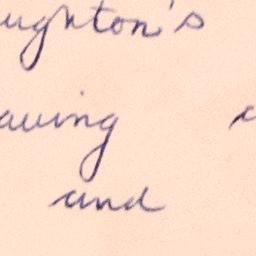 ughton's
aving
and